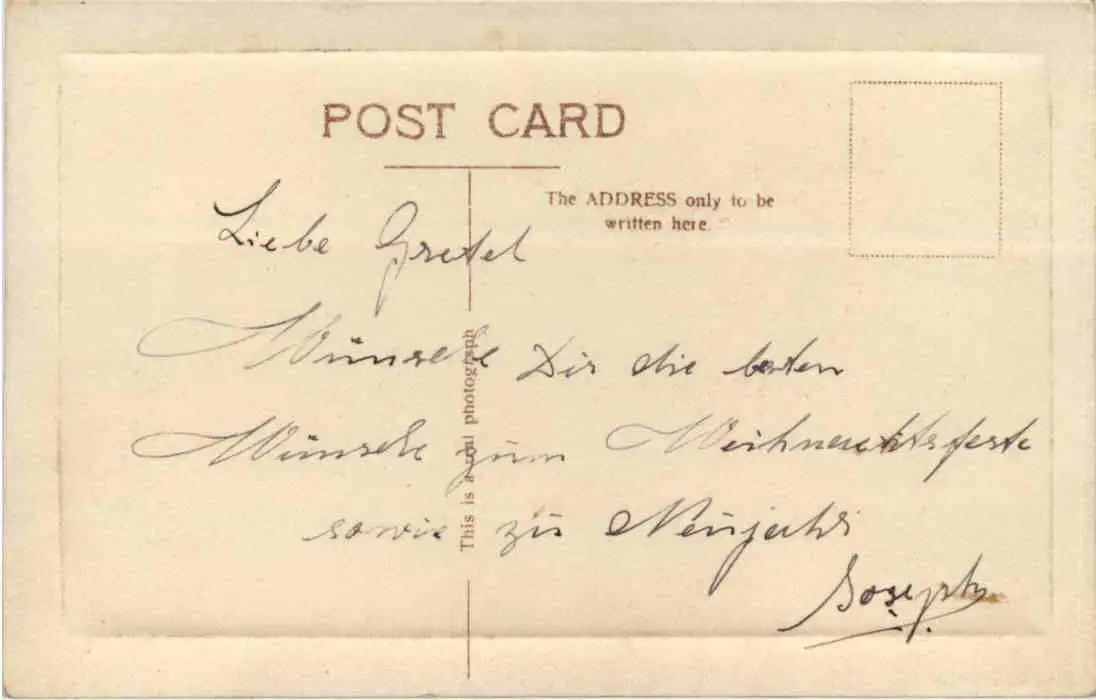 POST CARD
The ADDRESS only to be
written here.
This is a real photograph
Liebe Gretel
Wünsche Dir die besten
Wünsche zum Weihnachtsfeste
sowie zu Neujahr
Joseph